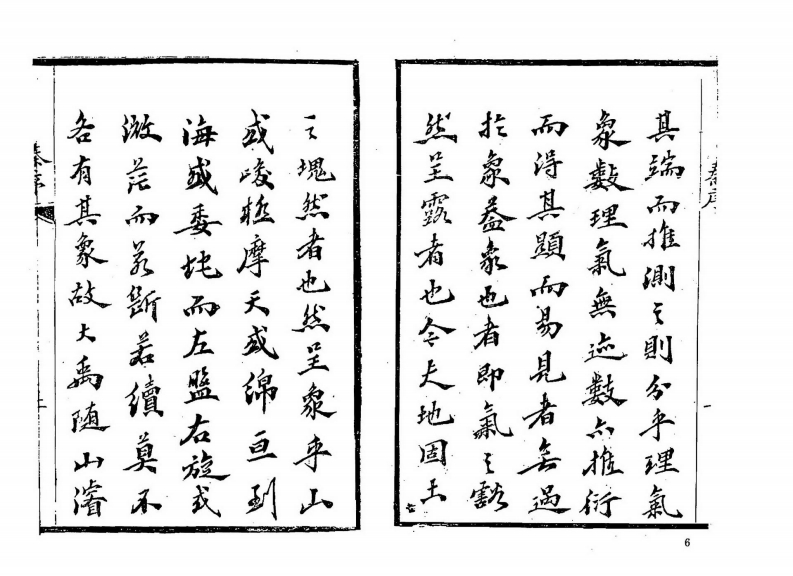 其端而推測之則分乎理氣
象數理氣無迹數亦推衍
而得其顯而易見者無過
於象葢象也者即氣之豁
然呈露者也今夫地固土
之塊然者也然呈象乎山
或峻極摩天或綿亘到
海或委坨而左盤右旋或
微茫而若斷若續莫不
各有其象故大禹随山濬
6